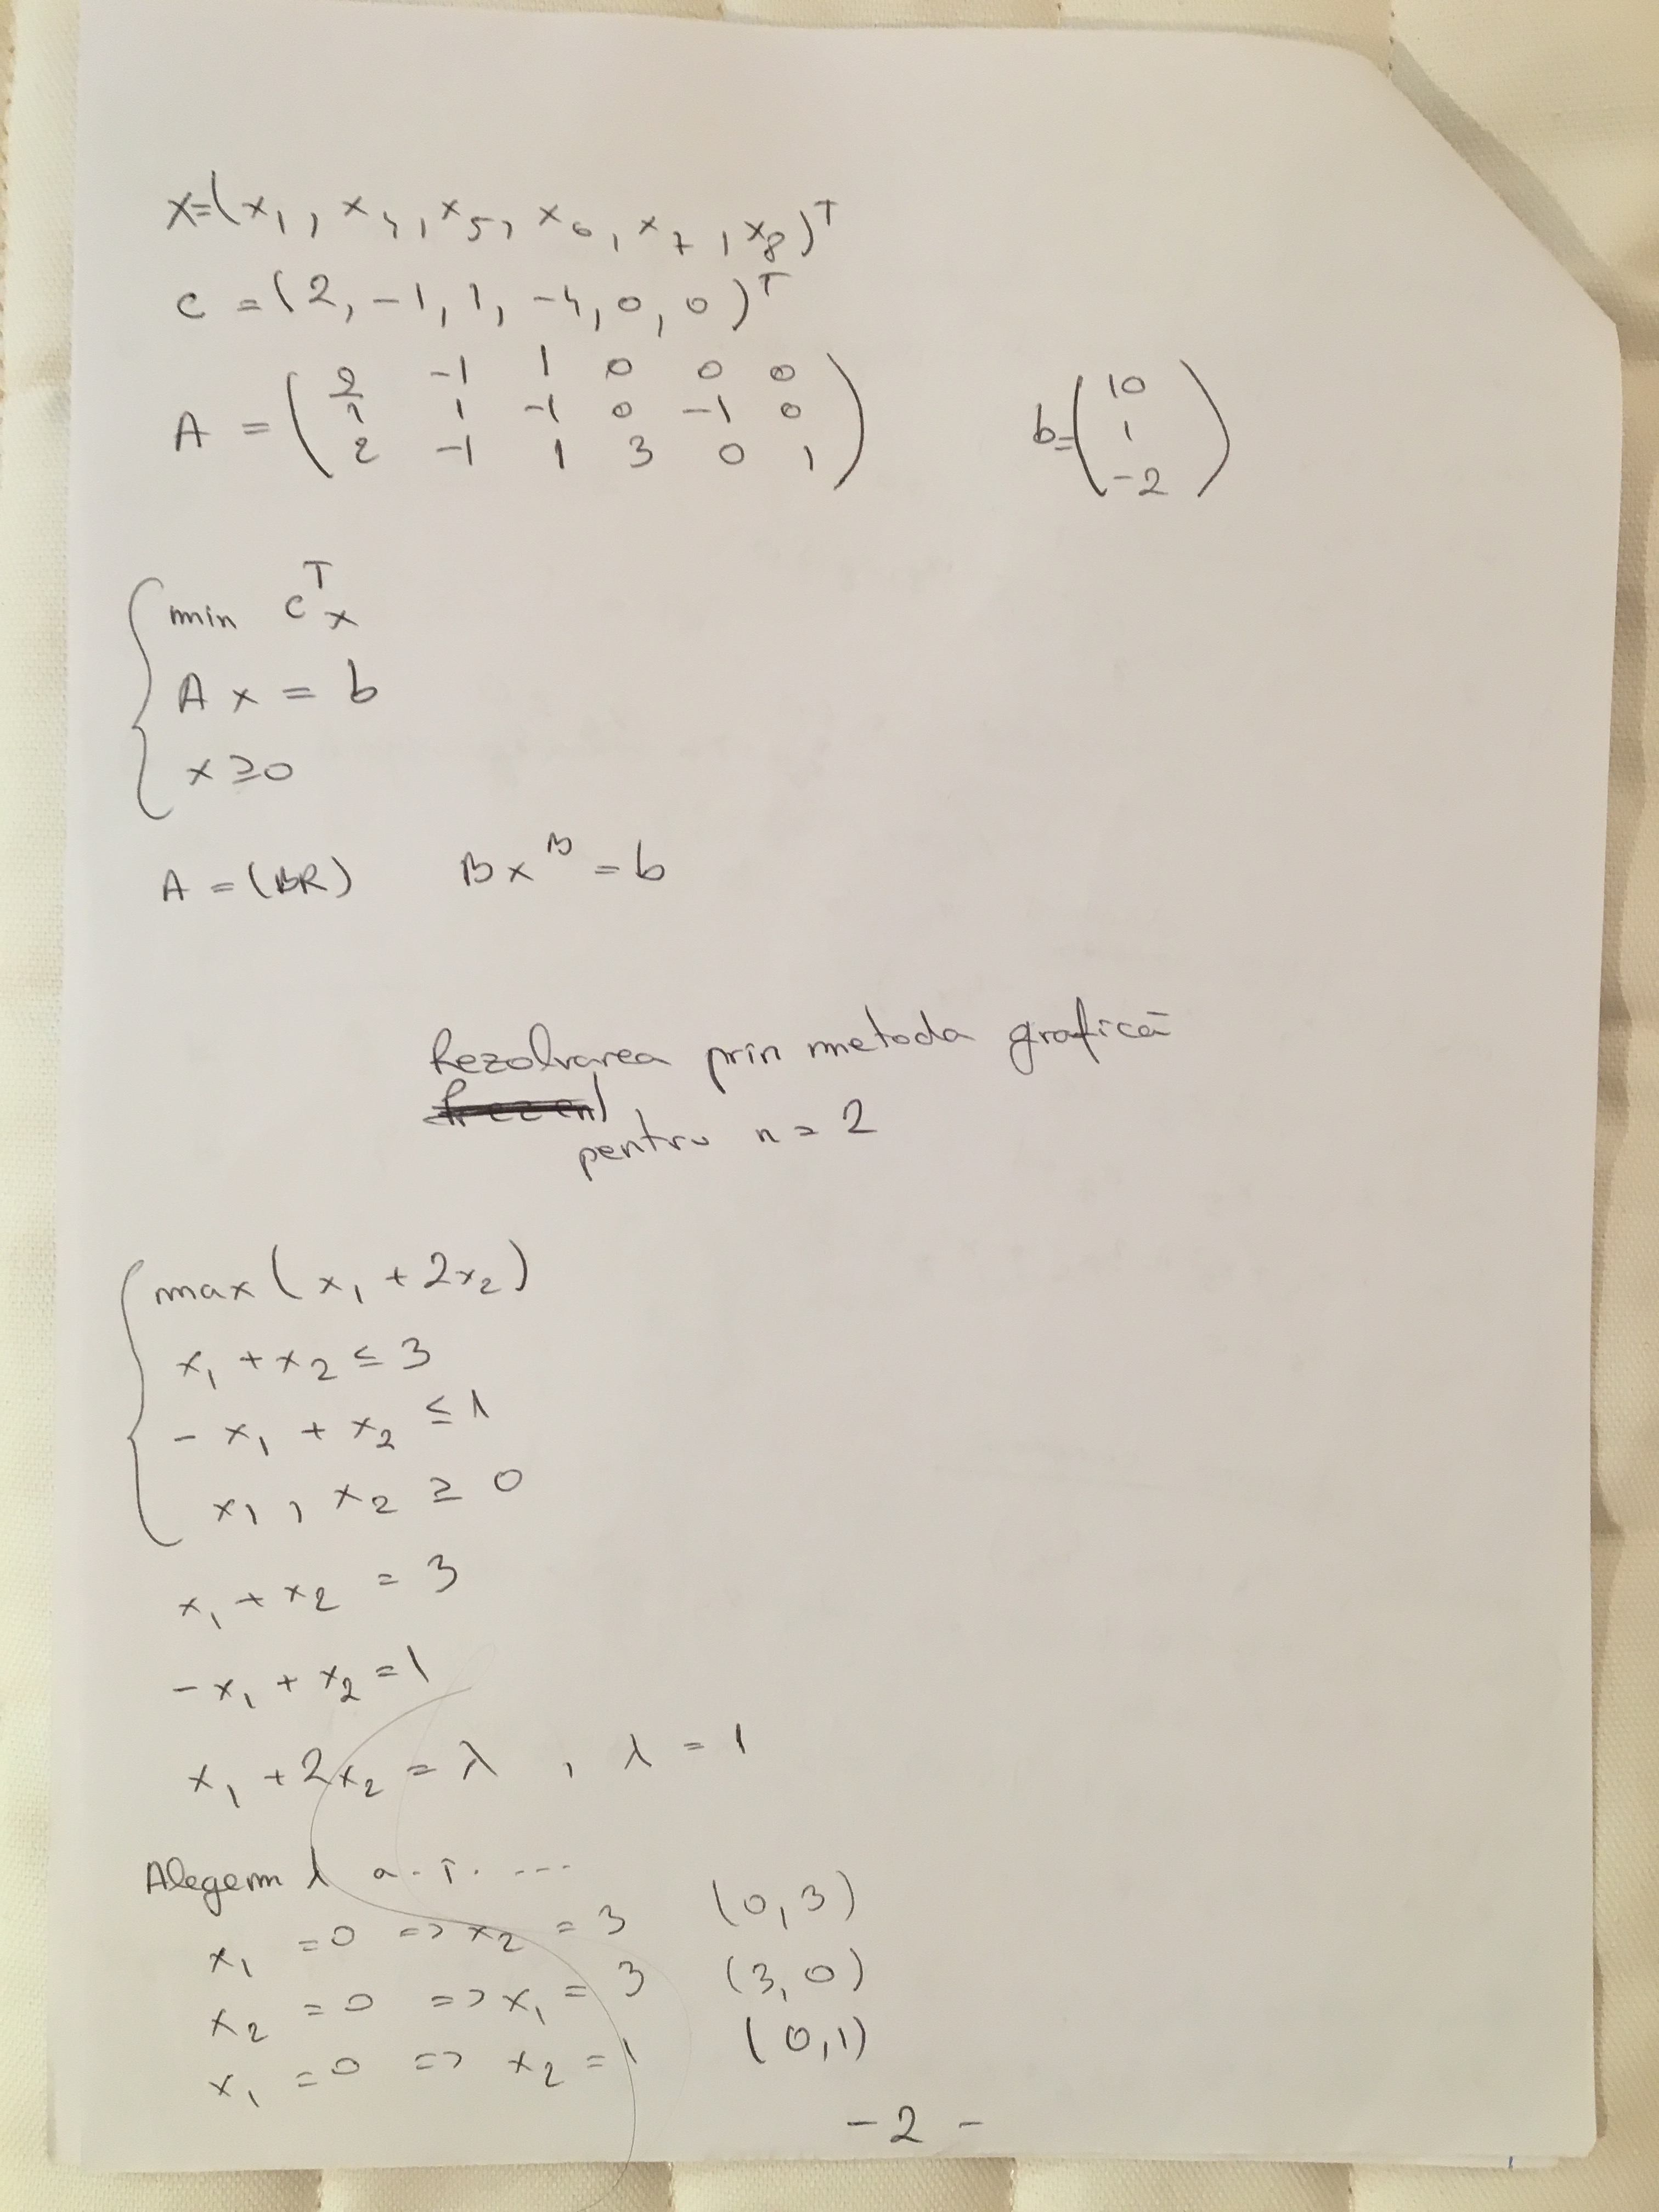 x=(x₁, x₄, x₅, x₆, x₇, x₈)ᵀ
c = (2, -1, 1, -4, 0, 0)ᵀ
A = ( 2 -1 1 0 0 0
1 1 -1 0 -1 0
2 -1 1 3 0 1 )
b= ( 10
1
-2 )
min cᵀx
A x = b
x ≥ 0
A = (BR) B xᴮ = b
Rezolvarea prin metoda grafică
pentru n = 2
max ( x₁ + 2x₂ )
x₁ + x₂ ≤ 3
- x₁ + x₂ ≤ 1
x₁ , x₂ ≥ 0
x₁ + x₂ = 3
-x₁ + x₂ = 1
x₁ + 2x₂ = λ , λ = 1
Alegem λ a. î. ...
x₁ = 0 => x₂ = 3 (0,3)
x₂ = 0 => x₁ = 3 (3,0)
x₁ = 0 => x₂ = 1 (0,1)
- 2 -